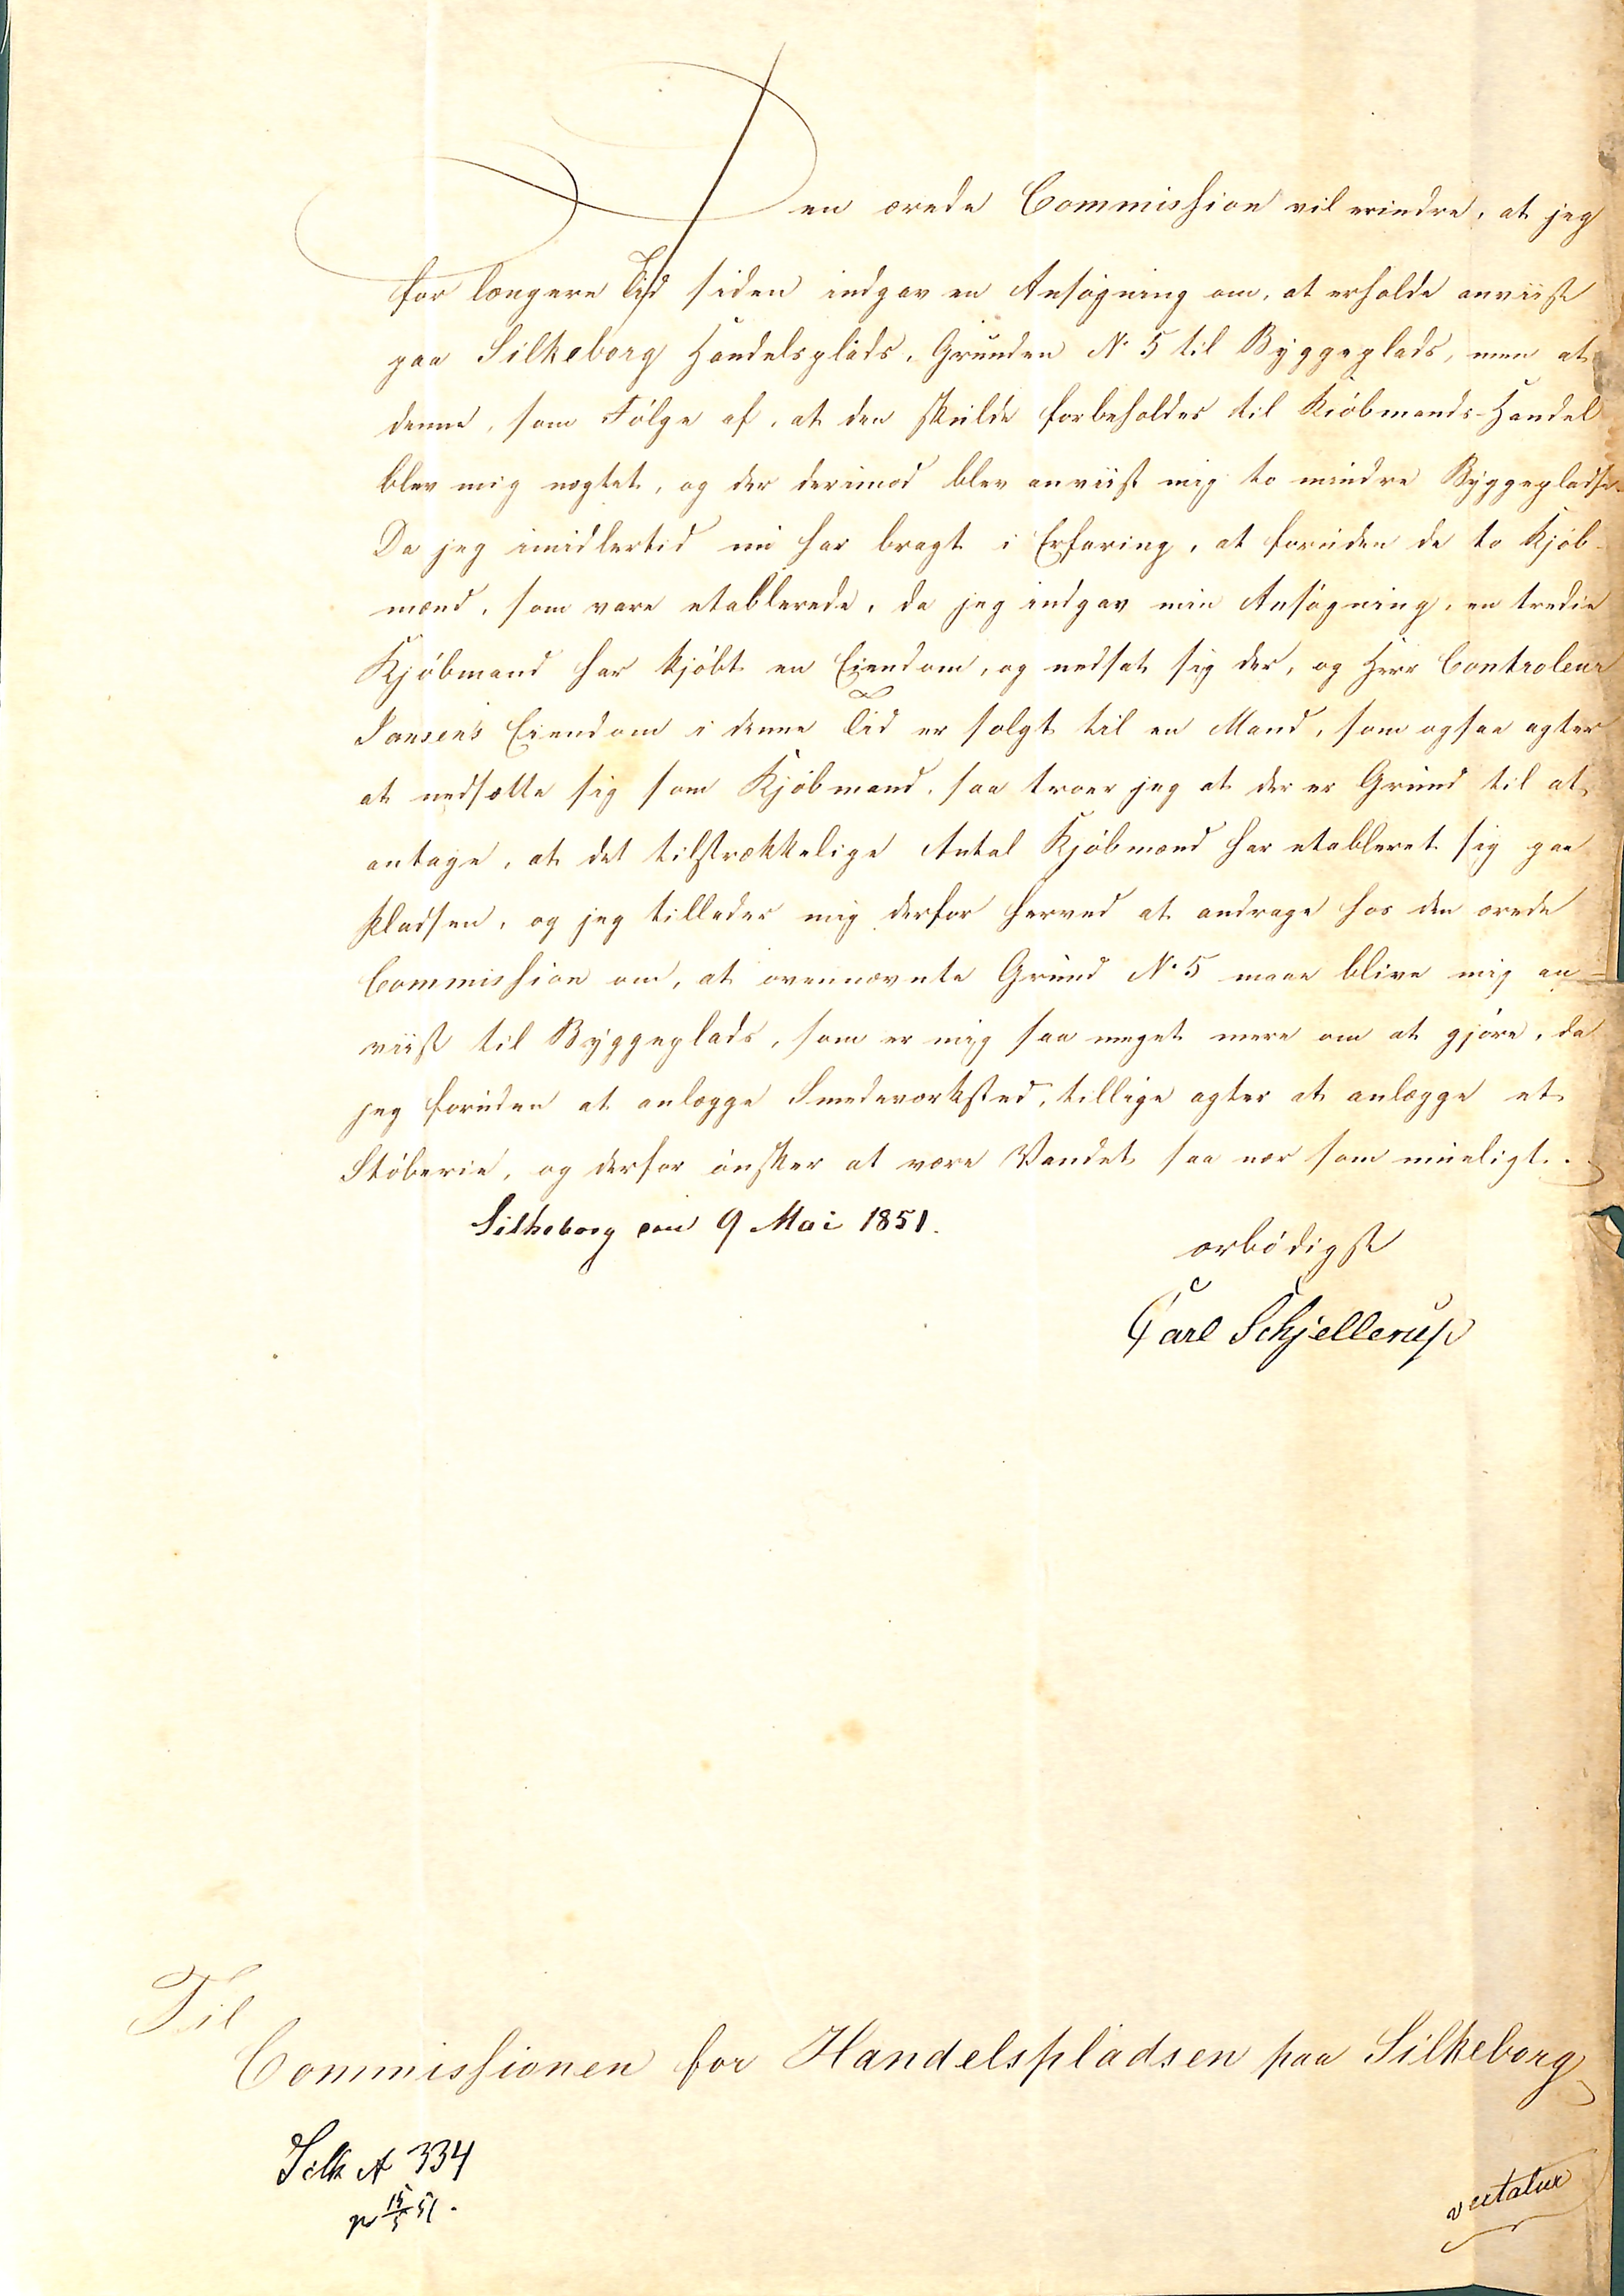 Den ærede Commission vil erindre, at jeg
for længere Tid siden indgav en Ansøgning om, at erholde anviist
paa Silkeborg Handelsplads, Grunden No 5 til Byggeplads, men at
denne, som Følge af, at den skulde forbeholdes til Kiøbmands-Handel
blev mig nægtet, og der derimod blev anviist mig to mindre Byggepladse.
Da jeg imidlertid nu har bragt i Erfaring, at foruden de to Kjøb-
mænd, som vare etablerede, da jeg indgav min Ansøgning, en tredie
Kjøbmand har kjøbt en Eiendom, og nedsat sig der, og Herr Controleur
Jansen's Eiendom i denne Tid er solgt til en Mand, som ogsaa agter
at nedsætte sig som Kjøbmand, saa troer jeg at der er Grund til at
antage, at det tilstrækkelige Antal Kjøbmænd har etableret sig paa
Pladsen, og jeg tillader mig derfor herved at andrage hos den ærede
Commission om, at ovennævnte Grund No 5 maae blive mig an-
viist til Byggeplads, som er mig saa meget mere om at gjøre, da
jeg foruden at anlægge Smedeværksted, tillige agter at anlægge et
Støberie, og derfor ønsker at være Vandet saa nær som mueligt.
Silkeborg den 9 Mai 1851.
ærbødigst
Carl Schjellerup
Til
Commissionen for Handelspladsen paa Silkeborg
Silk A 334
pr 15/5 51.
vertatur